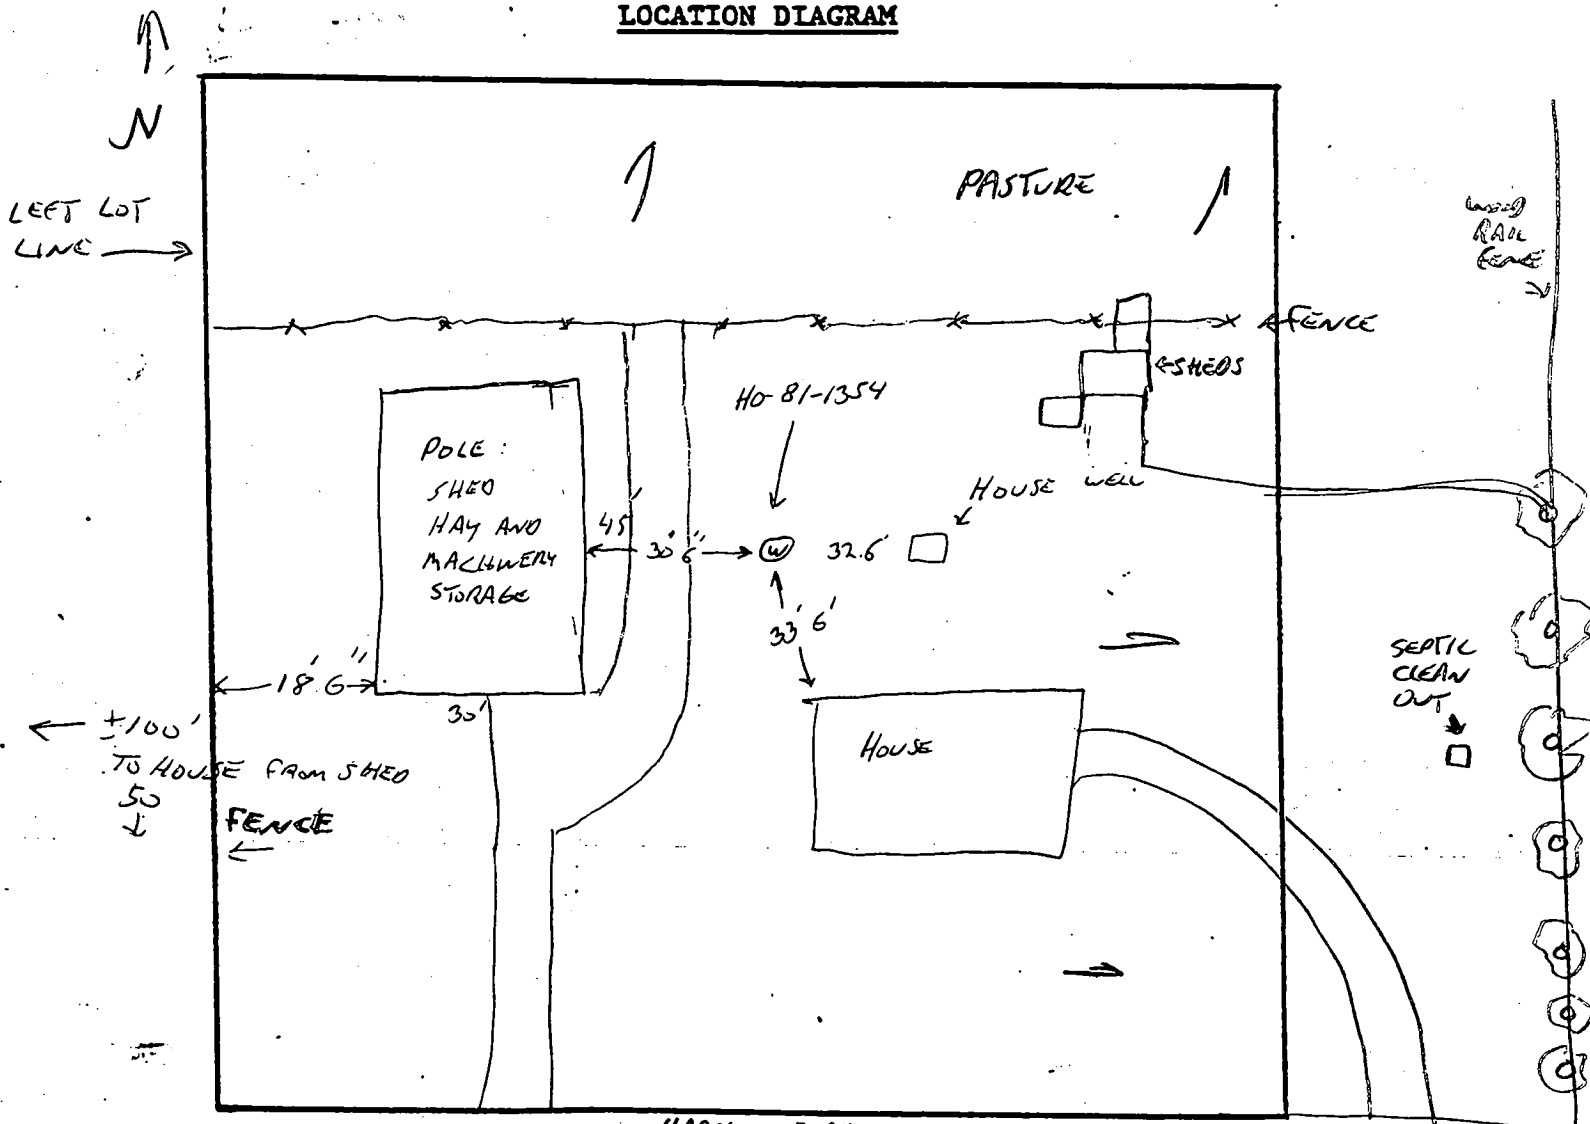 LOCATION DIAGRAM
N
LEFT LOT
LINE
PASTURE
WOOD
RAIL
FENCE
FENCE
SHEDS
HO-81-1354
POLE:
SHED
HAY AND
MACHINERY
STORAGE
45'
30' 6"
W
32.6'
HOUSE WELL
33' 6'
18' 6"
30'
±100'
TO HOUSE FROM SHED
50
FENCE
HOUSE
SEPTIC
CLEAN
OUT